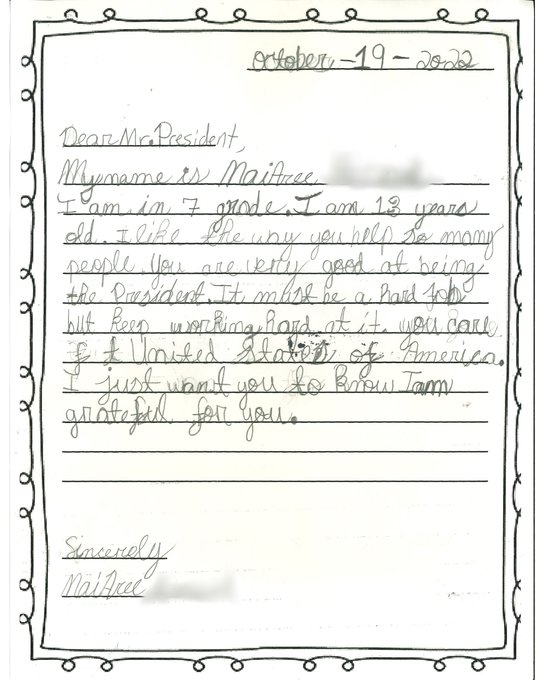 October -19- 2022
Dear Mr. President,
My name is MaiTree
I am in 7 grade. I am 13 years
old. I like the way you help so many
people. You are very good at being
the President. It must be a hard job
but keep working hard at it. you care
United States of America.
I just want you to know I am
grateful for you.
Sincerely
MaiTree